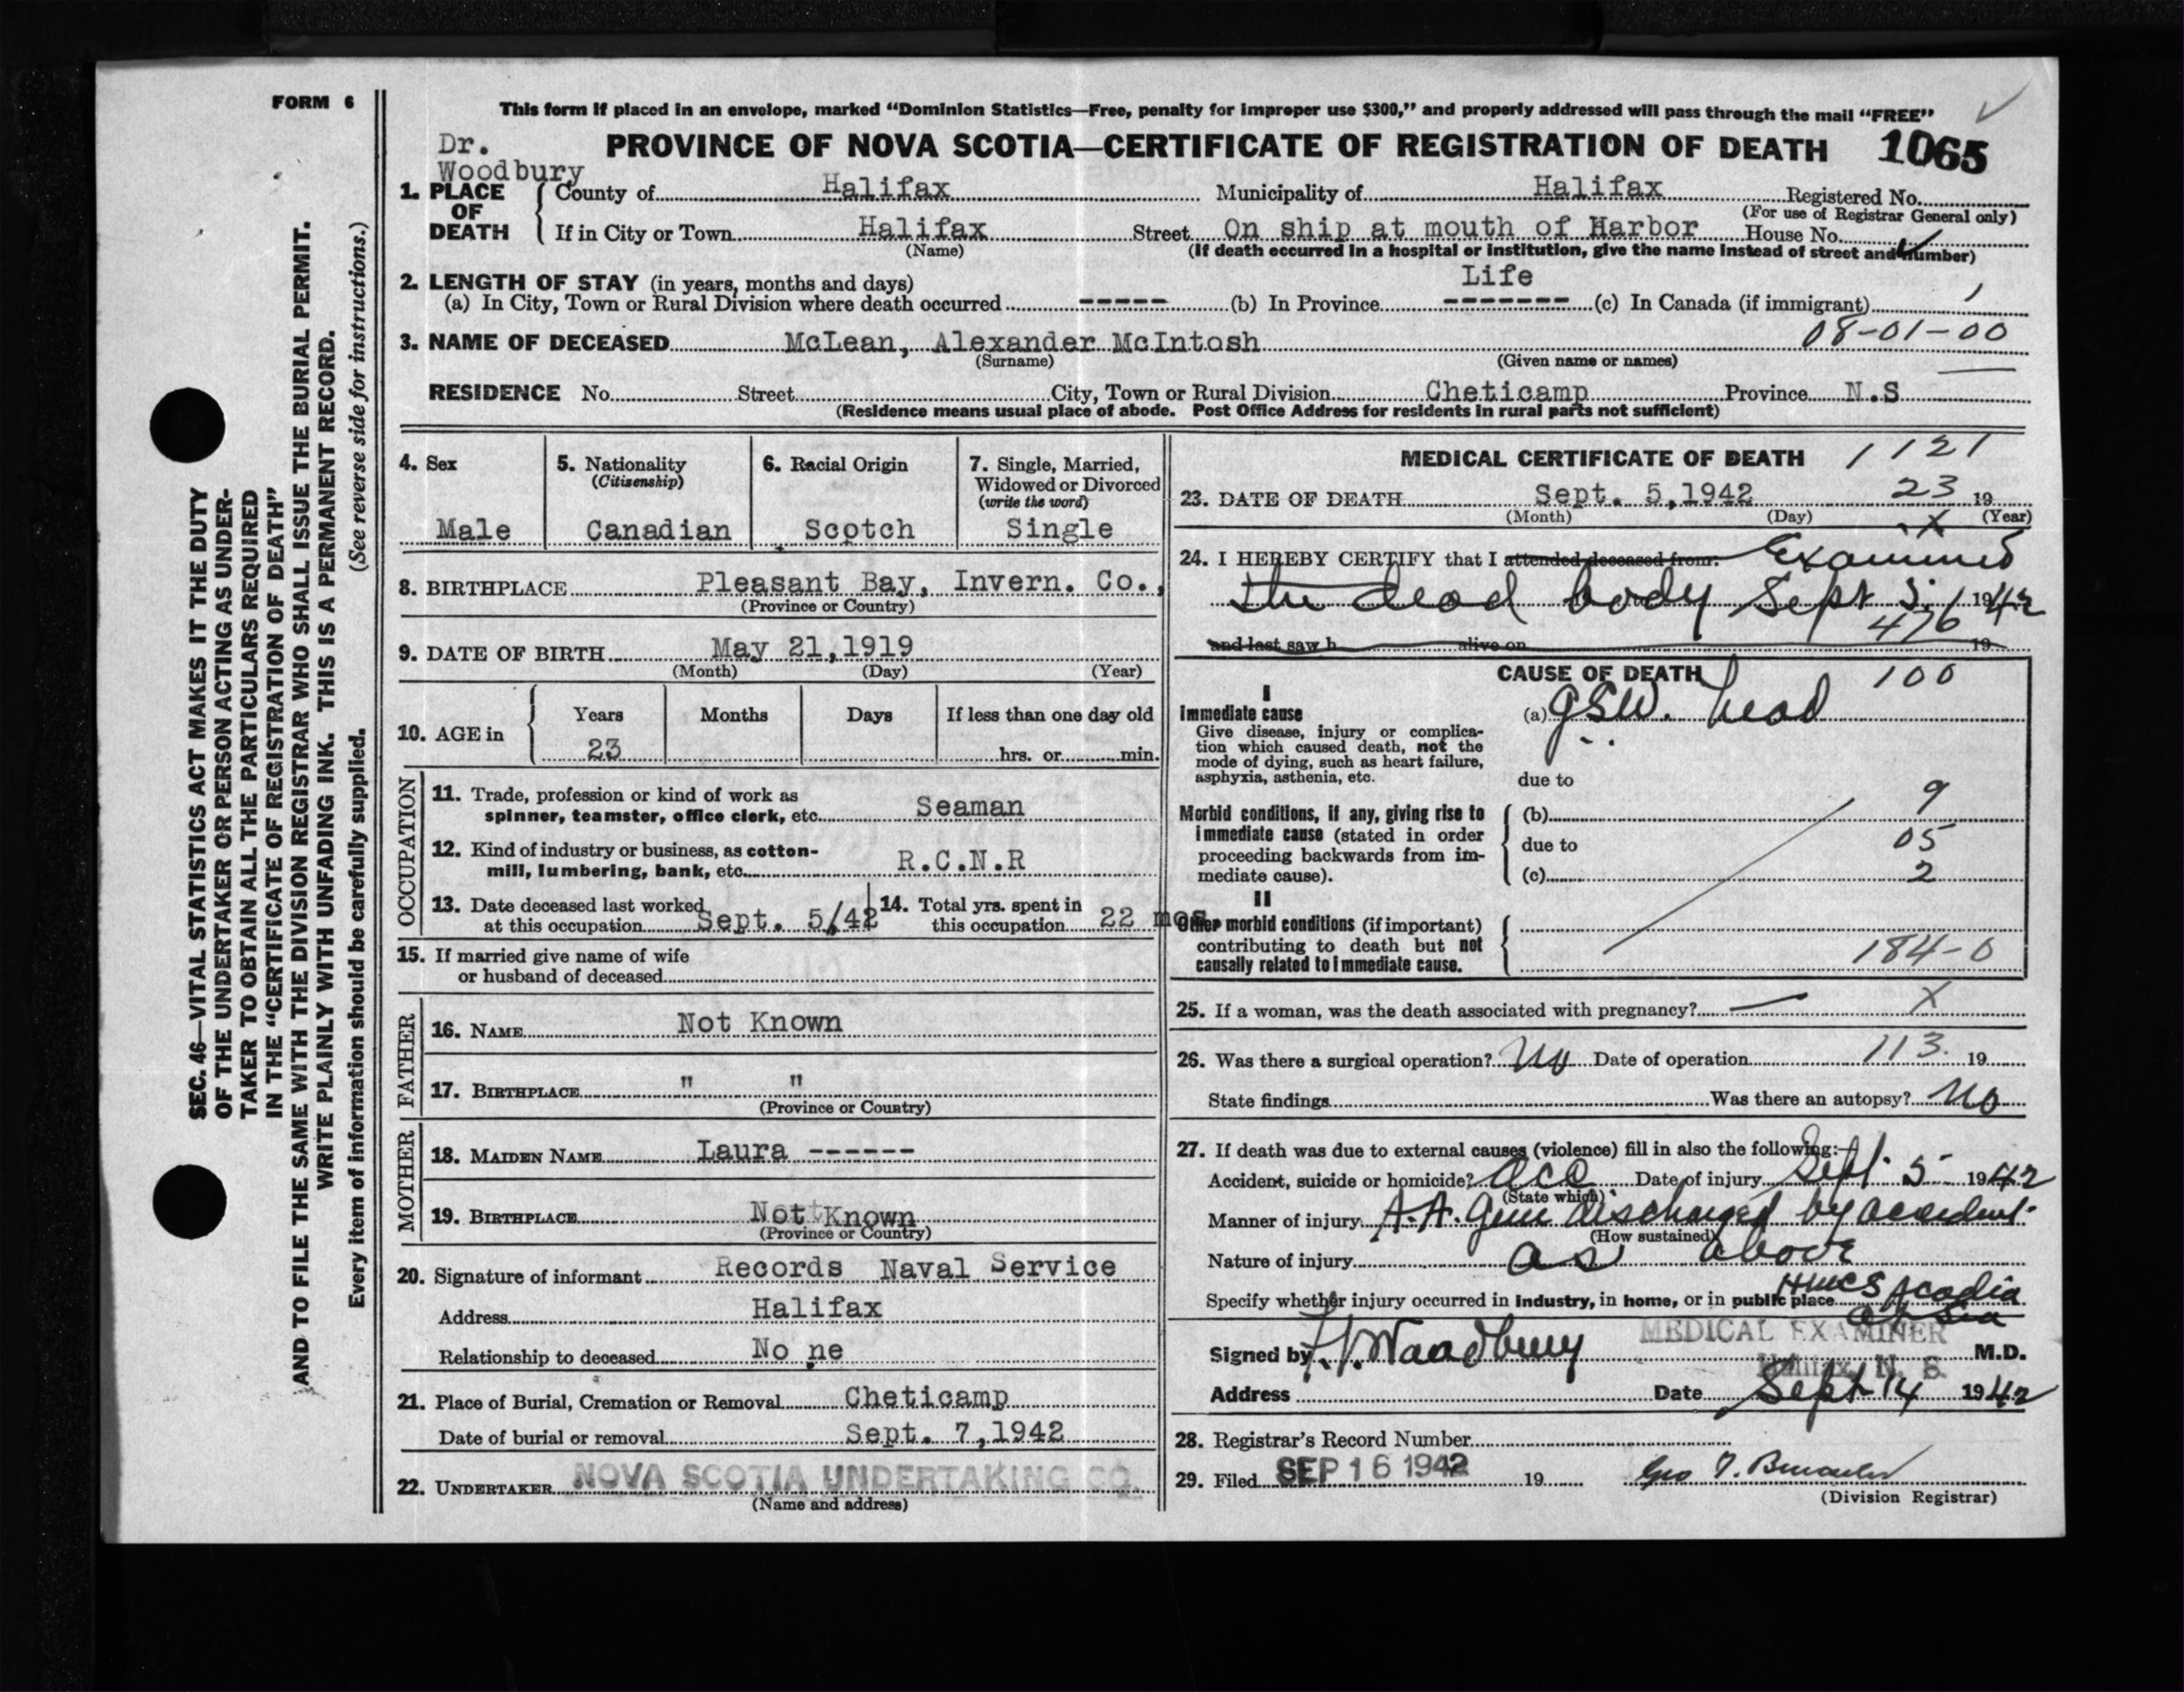 FORM 6
This form if placed in an envelope, marked “Dominion Statistics—Free, penalty for improper use $300,” and properly addressed will pass through the mail “FREE”
Dr.
Woodbury
PROVINCE OF NOVA SCOTIA—CERTIFICATE OF REGISTRATION OF DEATH 1065
1. PLACE OF DEATH
County of Halifax Municipality of Halifax Registered No.
(For use of Registrar General only)
If in City or Town Halifax Street On ship at mouth of Harbor House No.
(Name) (If death occurred in a hospital or institution, give the name instead of street and number)
2. LENGTH OF STAY (in years, months and days) Life
(a) In City, Town or Rural Division where death occurred ----- (b) In Province ------- (c) In Canada (if immigrant)
08-01-00
3. NAME OF DECEASED McLean, Alexander McIntosh
(Surname) (Given name or names)
RESIDENCE No. Street City, Town or Rural Division Cheticamp Province N.S
(Residence means usual place of abode. Post Office Address for residents in rural parts not sufficient)
4. Sex
Male
5. Nationality
(Citizenship)
Canadian
6. Racial Origin
Scotch
7. Single, Married,
Widowed or Divorced
(write the word)
Single
8. BIRTHPLACE Pleasant Bay, Invern. Co.,
(Province or Country)
9. DATE OF BIRTH May 21,1919
(Month) (Day) (Year)
10. AGE in
Years Months Days If less than one day old
23 hrs. or min.
OCCUPATION
11. Trade, profession or kind of work as
spinner, teamster, office clerk, etc. Seaman
12. Kind of industry or business, as cotton-
mill, lumbering, bank, etc. R.C.N.R
13. Date deceased last worked
at this occupation Sept. 5/42
14. Total yrs. spent in
this occupation 22 mos.
15. If married give name of wife
or husband of deceased
FATHER
16. NAME Not Known
17. BIRTHPLACE " "
(Province or Country)
MOTHER
18. MAIDEN NAME Laura ------
19. BIRTHPLACE Not Known
(Province or Country)
20. Signature of informant Records Naval Service
Address Halifax
Relationship to deceased No ne
21. Place of Burial, Cremation or Removal Cheticamp
Date of burial or removal Sept. 7,1942
22. UNDERTAKER NOVA SCOTIA UNDERTAKING CO.
(Name and address)
MEDICAL CERTIFICATE OF DEATH 1121
23. DATE OF DEATH Sept. 5,1942 23 19
(Month) (Day) (Year)
X
24. I HEREBY CERTIFY that I attended deceased from: Examined
the dead body Sept 5 1942
476
and last saw h alive on 19
CAUSE OF DEATH 100
I
Immediate cause (a) GSW. head
Give disease, injury or complica-
tion which caused death, not the
mode of dying, such as heart failure,
asphyxia, asthenia, etc.
due to
Morbid conditions, if any, giving rise to
immediate cause (stated in order
proceeding backwards from im-
mediate cause).
(b) 9
due to 05
(c) 2
II
Other morbid conditions (if important)
contributing to death but not
causally related to immediate cause.
184-0
25. If a woman, was the death associated with pregnancy? — X
26. Was there a surgical operation? No Date of operation 113. 19
State findings Was there an autopsy? No
27. If death was due to external causes (violence) fill in also the following:—
Accident, suicide or homicide? acc Date of injury Sept. 5 1942
(State which)
Manner of injury A.A. gun discharged by accident
(How sustained)
Nature of injury as above
Specify whether injury occurred in industry, in home, or in public place HMCS Acadia
at Sea
MEDICAL EXAMINER
Signed by Woodbury M.D.
Halifax, N. S.
Address Date Sept 14 1942
28. Registrar's Record Number
29. Filed SEP 16 1942 19 Geo
(Division Registrar)
SEC. 46—VITAL STATISTICS ACT MAKES IT THE DUTY
OF THE UNDERTAKER OR PERSON ACTING AS UNDER-
TAKER TO OBTAIN ALL THE PARTICULARS REQUIRED
IN THE “CERTIFICATE OF REGISTRATION OF DEATH”
AND TO FILE THE SAME WITH THE DIVISION REGISTRAR WHO SHALL ISSUE THE BURIAL PERMIT.
WRITE PLAINLY WITH UNFADING INK. THIS IS A PERMANENT RECORD.
Every item of information should be carefully supplied. (See reverse side for instructions.)